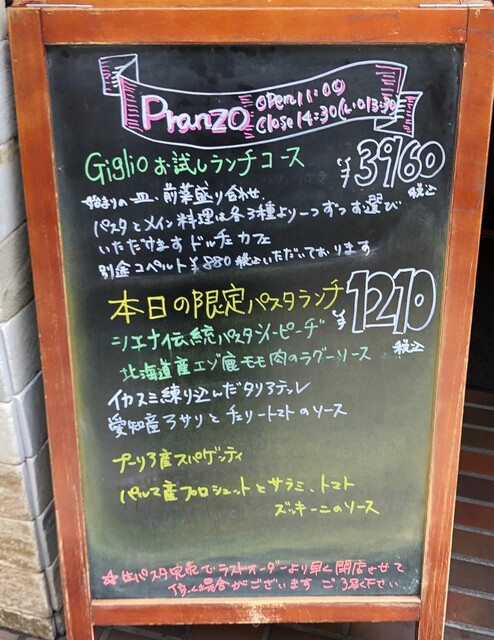 Pranzo
open 11:00
close 14:30 (L.o 13:30)
Giglio お試しランチコース ¥3960 税込
始まりの一皿、前菜盛り合わせ
パスタとメイン料理は各3種より一つずつお選び
いただけます ドルチェ カフェ
別途コペルト¥880税込いただいております
本日の限定パスタランチ ¥1210 税込
シエナ伝統パスタ ピーチ
北海道産エゾ鹿モモ肉のラグーソース
イカスミ練り込んだタリアテッレ
愛知産アサリとチェリートマトのソース
プーリア産スパゲッティ
パルマ産プロシュットとサラミ、トマト
ズッキーニのソース
☆生パスタ完売でラストオーダーより早く閉店させて
頂く場合がございます ご了承下さい